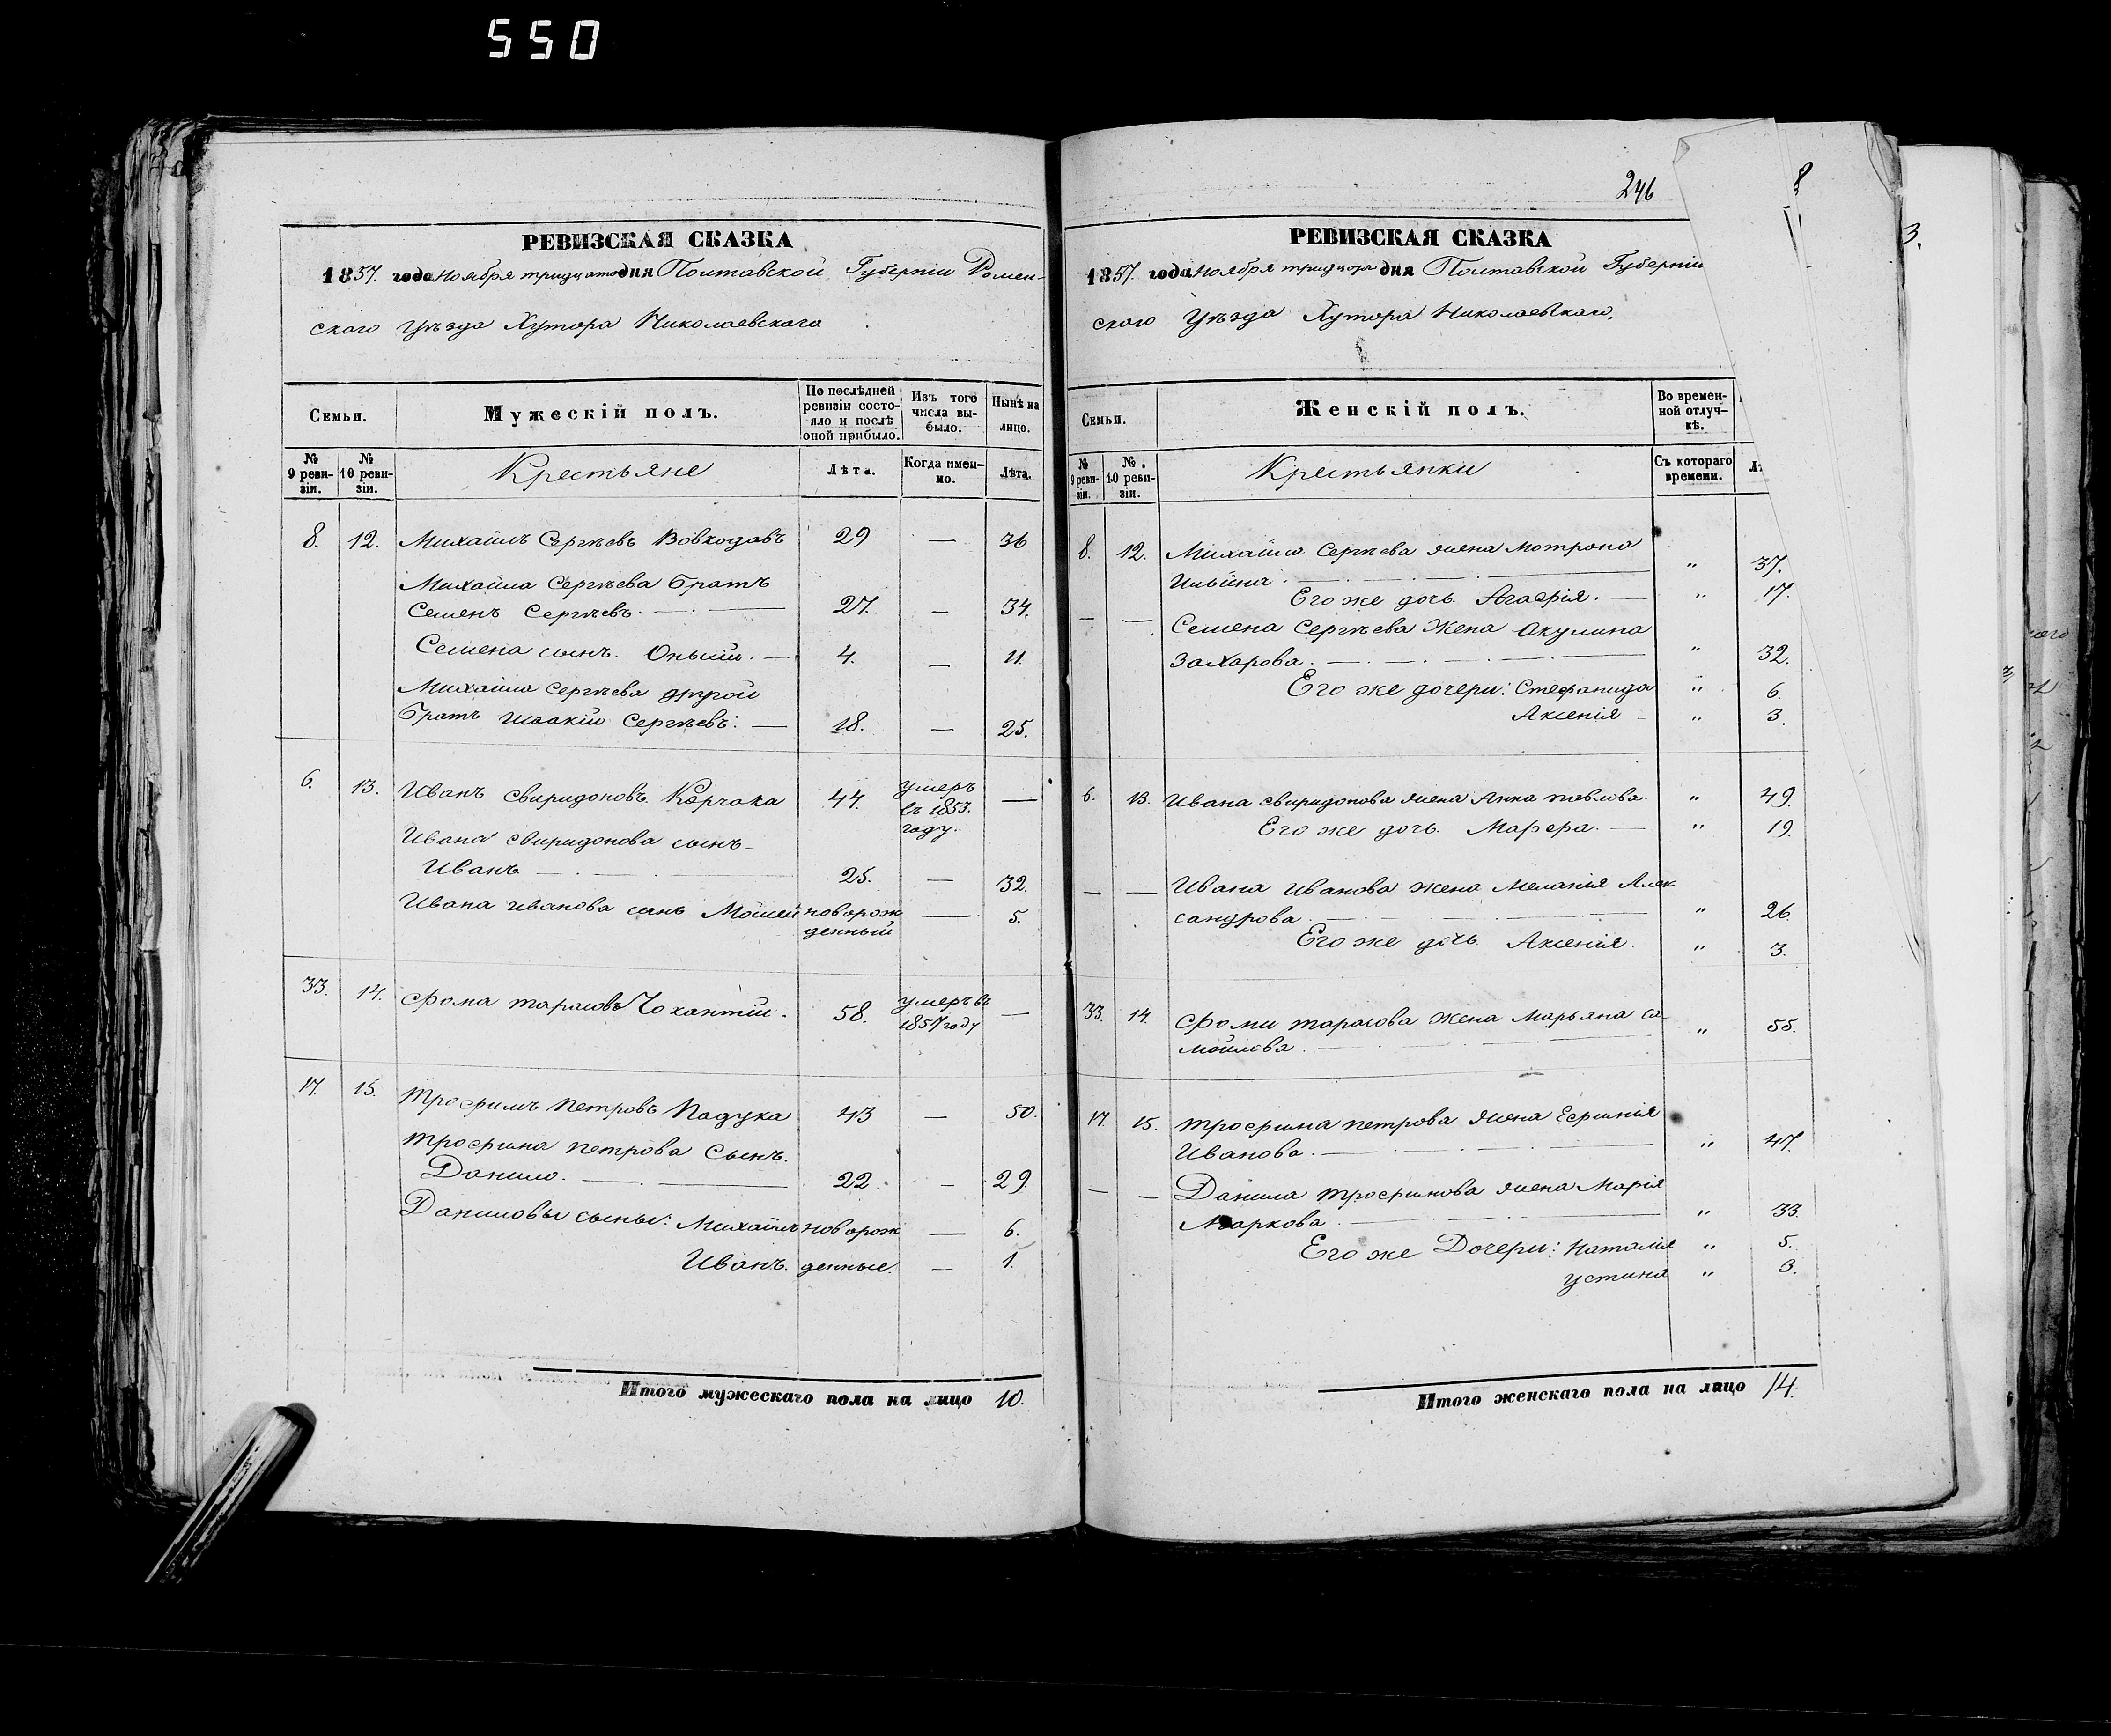 550
РЕВИЗСКАЯ СКАЗКА
1857. года Ноября тридцатого дня Полтавской Губерніи Ромен-
скаго уѣзда Хутора Николаевскаго
Семьи.
Мужескій полъ.
По послѣдней ревизіи состо-
яло и послѣ оной прибыло.
Изъ того числа вы-
было.
Нынѣ на лицо.
№ 9 реви-
зіи.
№ 10 реви-
зіи.
Крестьяне
Лѣта.
Когда имен-
но.
Лѣта.
8. 12. Михаилъ Сергѣевъ Вовкодавъ 29 — 36
Михайла Сергѣева братъ
Семенъ Сергѣевъ. — 27. — 34.
Семена сынъ. — 4. — 11.
Михайла Сергѣева другой
братъ Сергѣевъ: — 18. — 25.
6. 13. Иванъ Свиридоновъ Корчака 44. умеръ въ 1853. году. —
Ивана Свиридонова сынъ
Иванъ — 25. — 32.
Ивана Иванова сынъ Мойсей новорож
денный — 5.
33. 14. Фома Тарасовъ 58. умеръ въ 1857 году —
17. 15. Трофимъ Петровъ Падука 43 — 50.
Трофима Петрова Сынъ.
Данило. — 22. — 29.
Даниловы сыны: Михаилъ новорож — 6.
Иванъ. денные. — 1.
Итого мужескаго пола на лицо 10.
246
8
РЕВИЗСКАЯ СКАЗКА
1857. года Ноября тридцатого дня Полтавской Губерніи
скаго Уѣзда Хутора Николаевскаго.
Семьи.
Женскій полъ.
Во времен-
ной отлуч-
кѣ.
№ 9 реви-
зіи.
№ 10 реви-
зіи.
Крестьянки
Съ котораго времени.
8. 12. Михайла Сергѣева жена Мотрона
Ильина. — " 37.
Его же дочь Агафія. — " 17.
— — Семена Сергѣева Жена Акулина
Захарова. — " 32.
Его же дочери: Стефанида " 6.
Аксенія — " 3.
6. 13. Ивана Свиридонова жена Анна Павлова. " 49.
Его же дочь. Марфа. — " 19.
— — Ивана Иванова жена Меланія Алек
сандрова. — " 26.
Его же дочь Аксенія. " 3.
33. 14. Фомы Тарасова Жена Марьяна Са-
мойлова. — " 55.
17. 15. Трофима Петрова жена Ефимія
Иванова. — " 47.
— — Данила Трофимова жена Марія
Маркова. — " 33.
Его же Дочери: Наталія " 5.
Устина " 3.
Итого женскаго пола на лицо 14.
3.